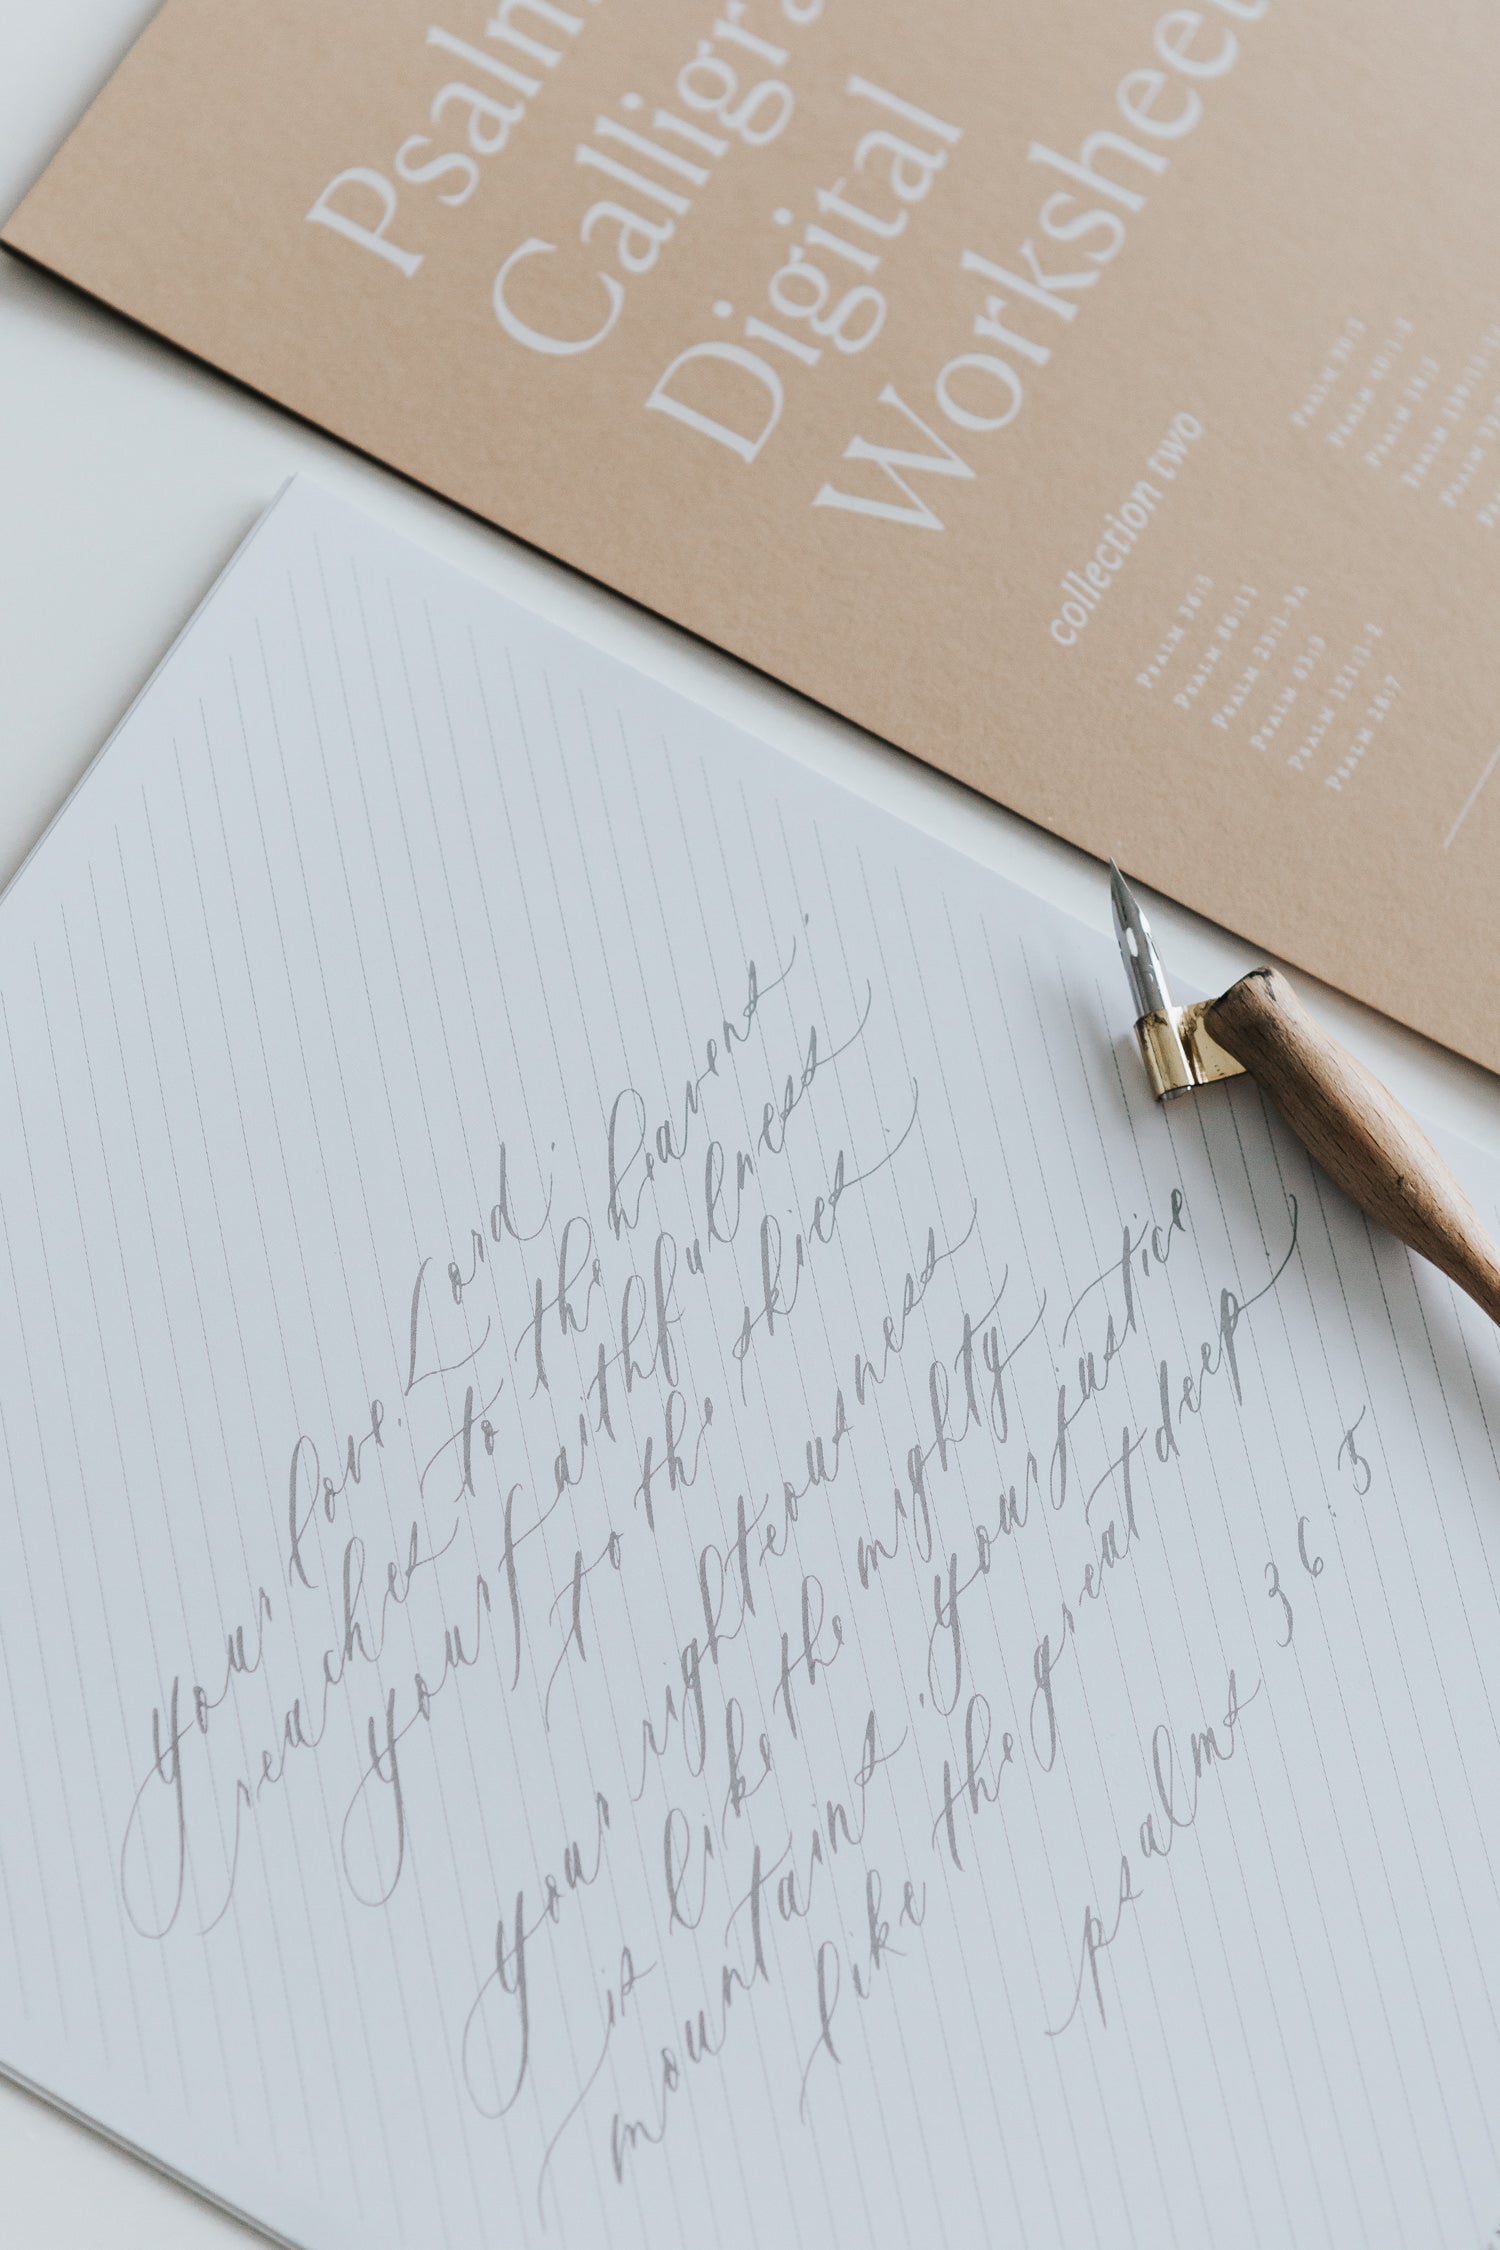 Psalm
Calligra
Digital
Worksheet
collection two
Psalm 36:5
Psalm 86:11
Psalm 23:1-3a
Psalm 63:3
Psalm 121:1-2
Psalm 28:7
your love, Lord,
reaches to the heavens,
your faithfulness
to the skies.
your righteousness
is like the mighty
mountains, your justice
like the great deep
psalms 36:5